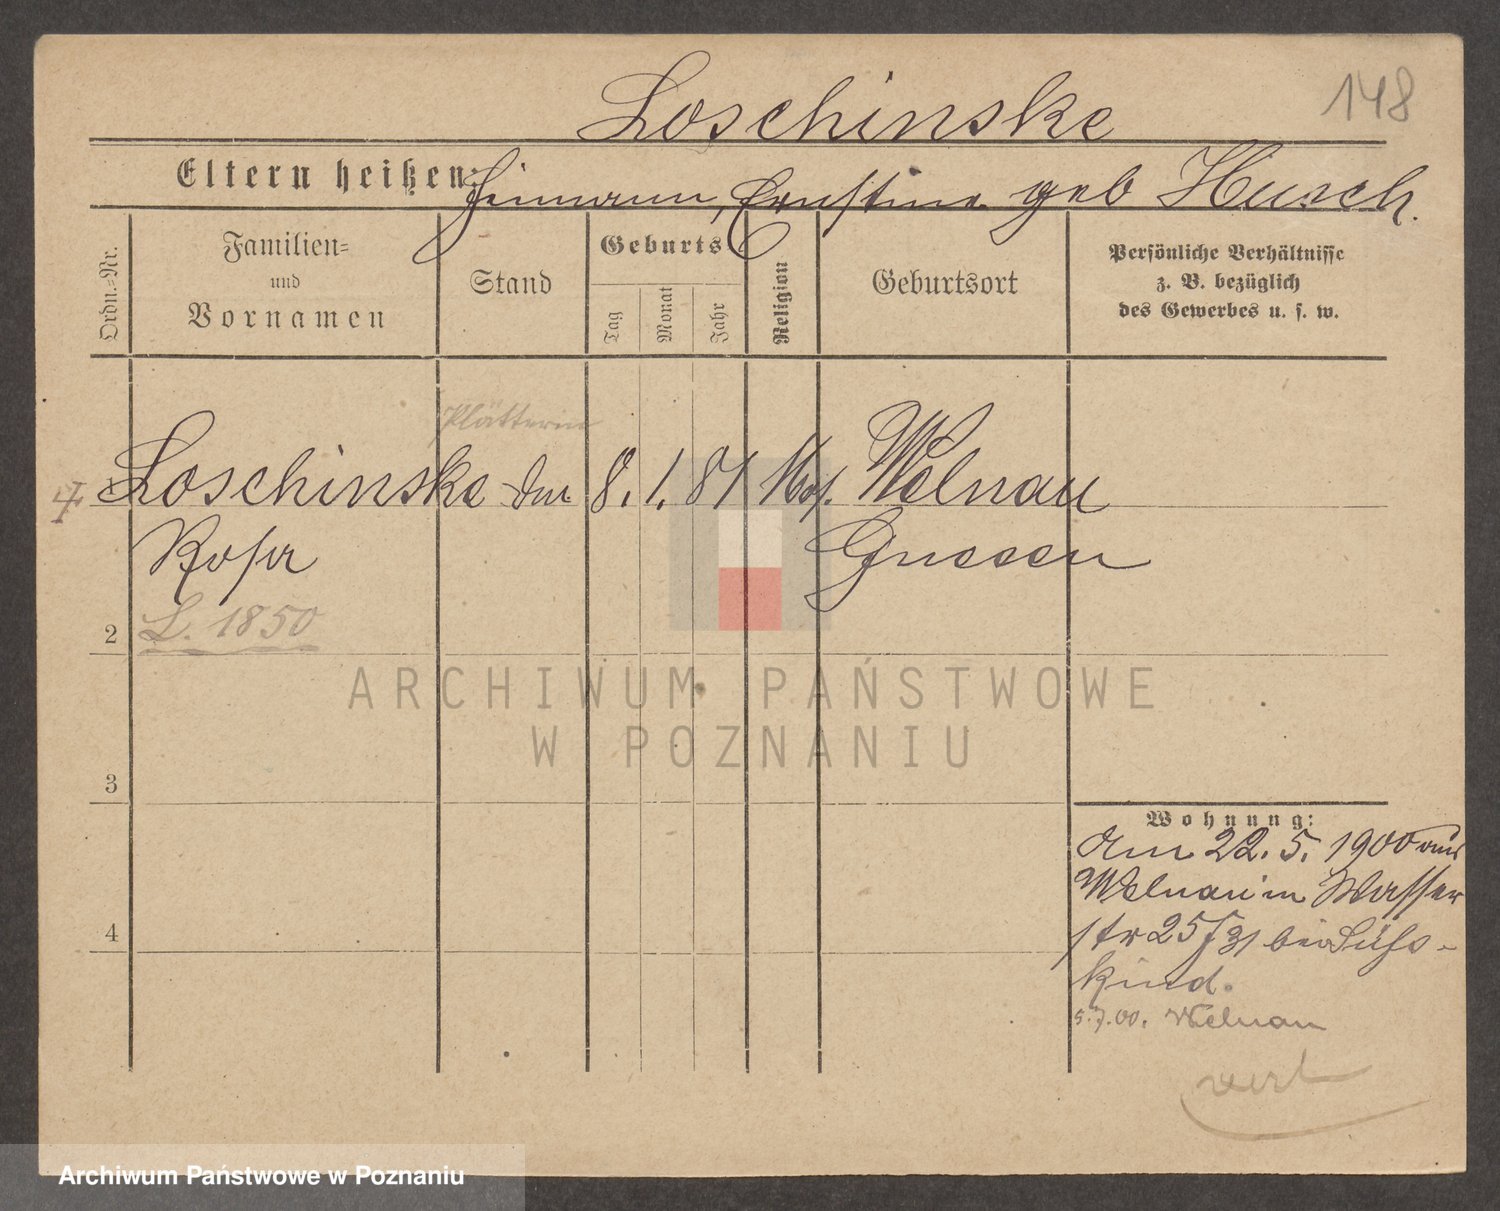 148
Loschinske
Eltern heißen: Heimann, Ernstine geb Husch.
Ordn.-Nr.
Familien- und Vornamen
Stand
Geburts
Tag
Monat
Jahr
Religion
Geburtsort
Persönliche Verhältnisse
z. B. bezüglich
des Gewerbes u. s. w.
Plätterin
Loschinske 8. 1. 81 Mos. Welnau
Rosa Gnesen
L. 1850
2
3
4
Wohnung:
Am 22. 5. 1900 aus
Welnau in Wasser
str 25 bei Süss-
kind.
5.7.00. Welnau
verl
ARCHIWUM PAŃSTWOWE
W POZNANIU
Archiwum Państwowe w Poznaniu